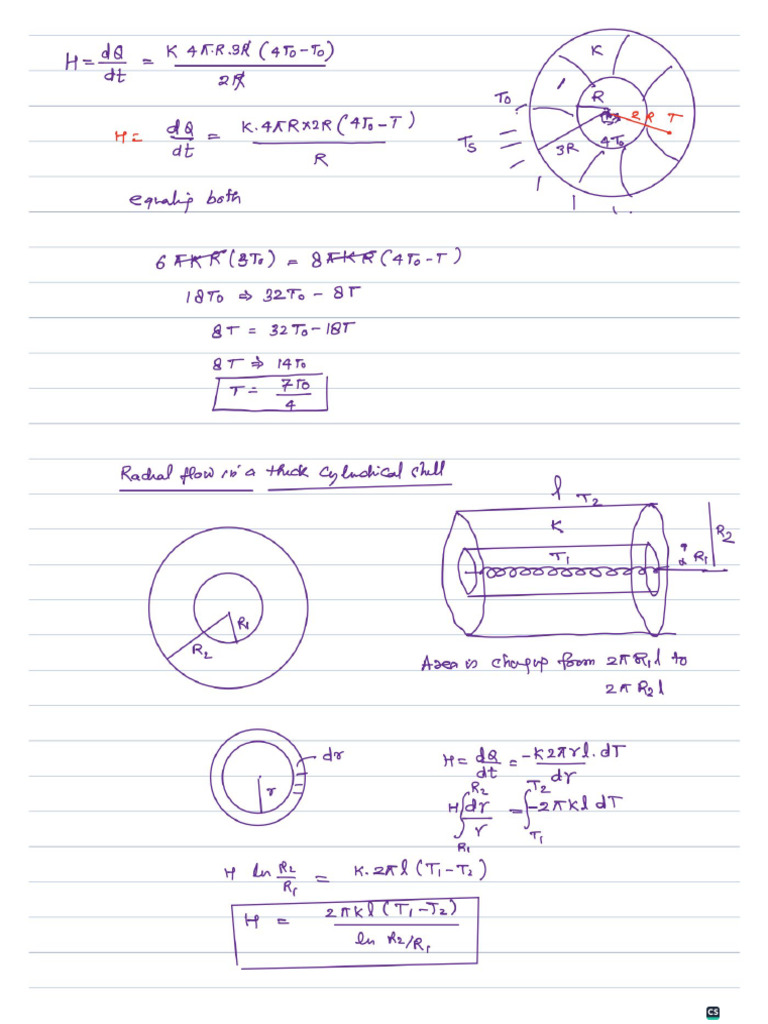 H = dQ/dt = K 4π.R.3R (4T₀-T₀) / 2R
H = dQ/dt = K.4πR×2R (4T₀-T) / R
equating both
6πKR (3T₀) = 8πKR (4T₀-T)
18T₀ ⇒ 32T₀ - 8T
8T = 32T₀ - 18T
8T ⇒ 14T₀
T = 7T₀/4
K
R
T₀
2R
T
4T₀
3R
Ts
Radial flow in a thick cylindrical shell
R₁
R₂
l
T₂
K
T₁
R₁
R₂
Area is changing from 2πR₁l to
2πR₂l
dr
r
H = dQ/dt = -K2πrl.dT/dr
H ∫_{R₁}^{R₂} dr/r = ∫_{T₁}^{T₂} -2πKl dT
H ln R₂/R₁ = K.2πl (T₁-T₂)
H = 2πKl (T₁-T₂) / ln R₂/R₁
CS